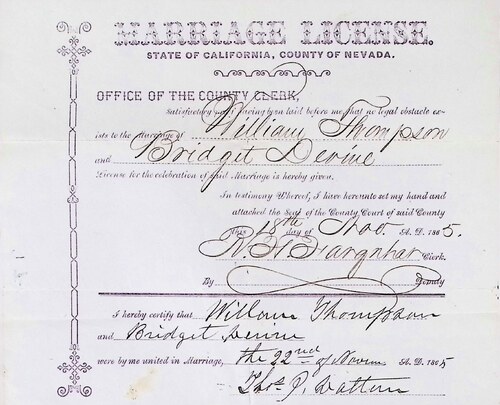 MARRIAGE LICENSE.
STATE OF CALIFORNIA, COUNTY OF NEVADA.
OFFICE OF THE COUNTY CLERK,
Satisfactory proof having been laid before me that no legal obstacle ex-
ists to the Marriage of William Thompson
and Bridget Devine
License for the celebration of said Marriage is hereby given.
In testimony Whereof, I have hereunto set my hand and
attached the Seal of the County Court of said County
this 18th day of Nov. A. D. 1865.
R. H. Farquhar Clerk.
By Deputy
I hereby certify that William Thompson
and Bridget Devine
were by me united in Marriage, the 22nd of Novem A. D. 1865
Thos J. Dalton